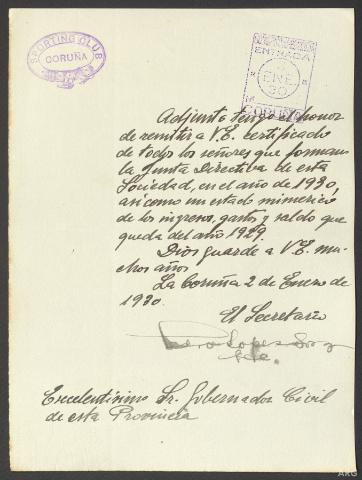 SPORTING CLUB
CORUÑA
ENTRADA
ENE
30
CORUÑA
Adjunto tengo el honor
de remitir a V.E. certificado
de todos los señores que forman
la Junta Directiva de esta
Sociedad, en el año de 1930,
asi como un estado numerico
de los ingresos, gastos y saldo que
queda del año 1929.
Dios guarde a V.E. mu-
chos años
La Coruña 2 de Enero de
1930.
El Secretario
Lopez
Excelentisimo Sr. Gobernador Civil
de esta Provincia
ARG